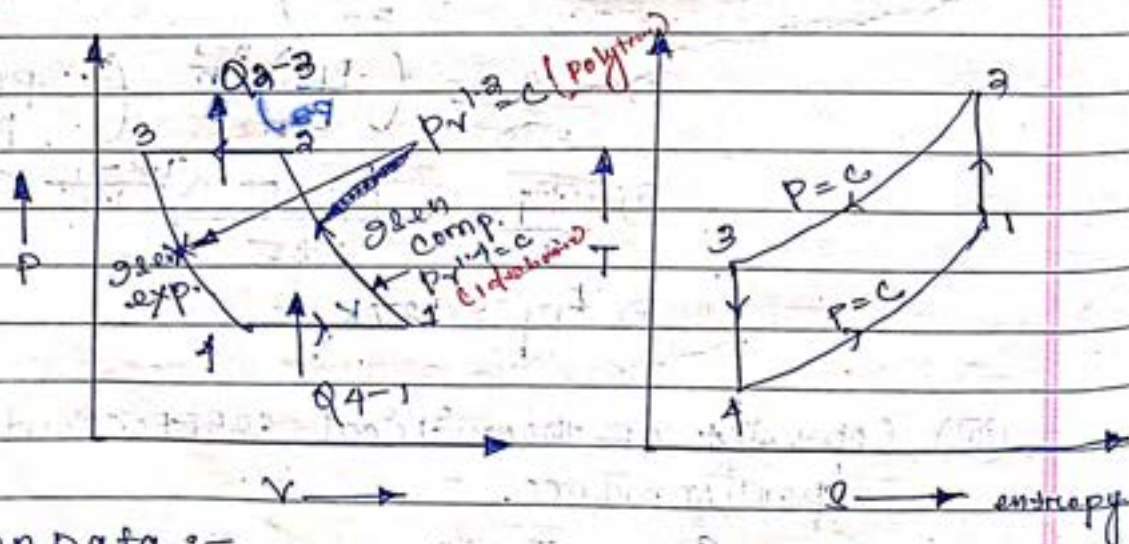 Q2-3
eq
3
2
Pv^1.2 = C (polytropic)
P
isen
exp.
isen
comp.
Pv^1.4 = c
4
1
Q4-1
V
T
2
P = C
3
1
P = C
4
entropy
Data :-